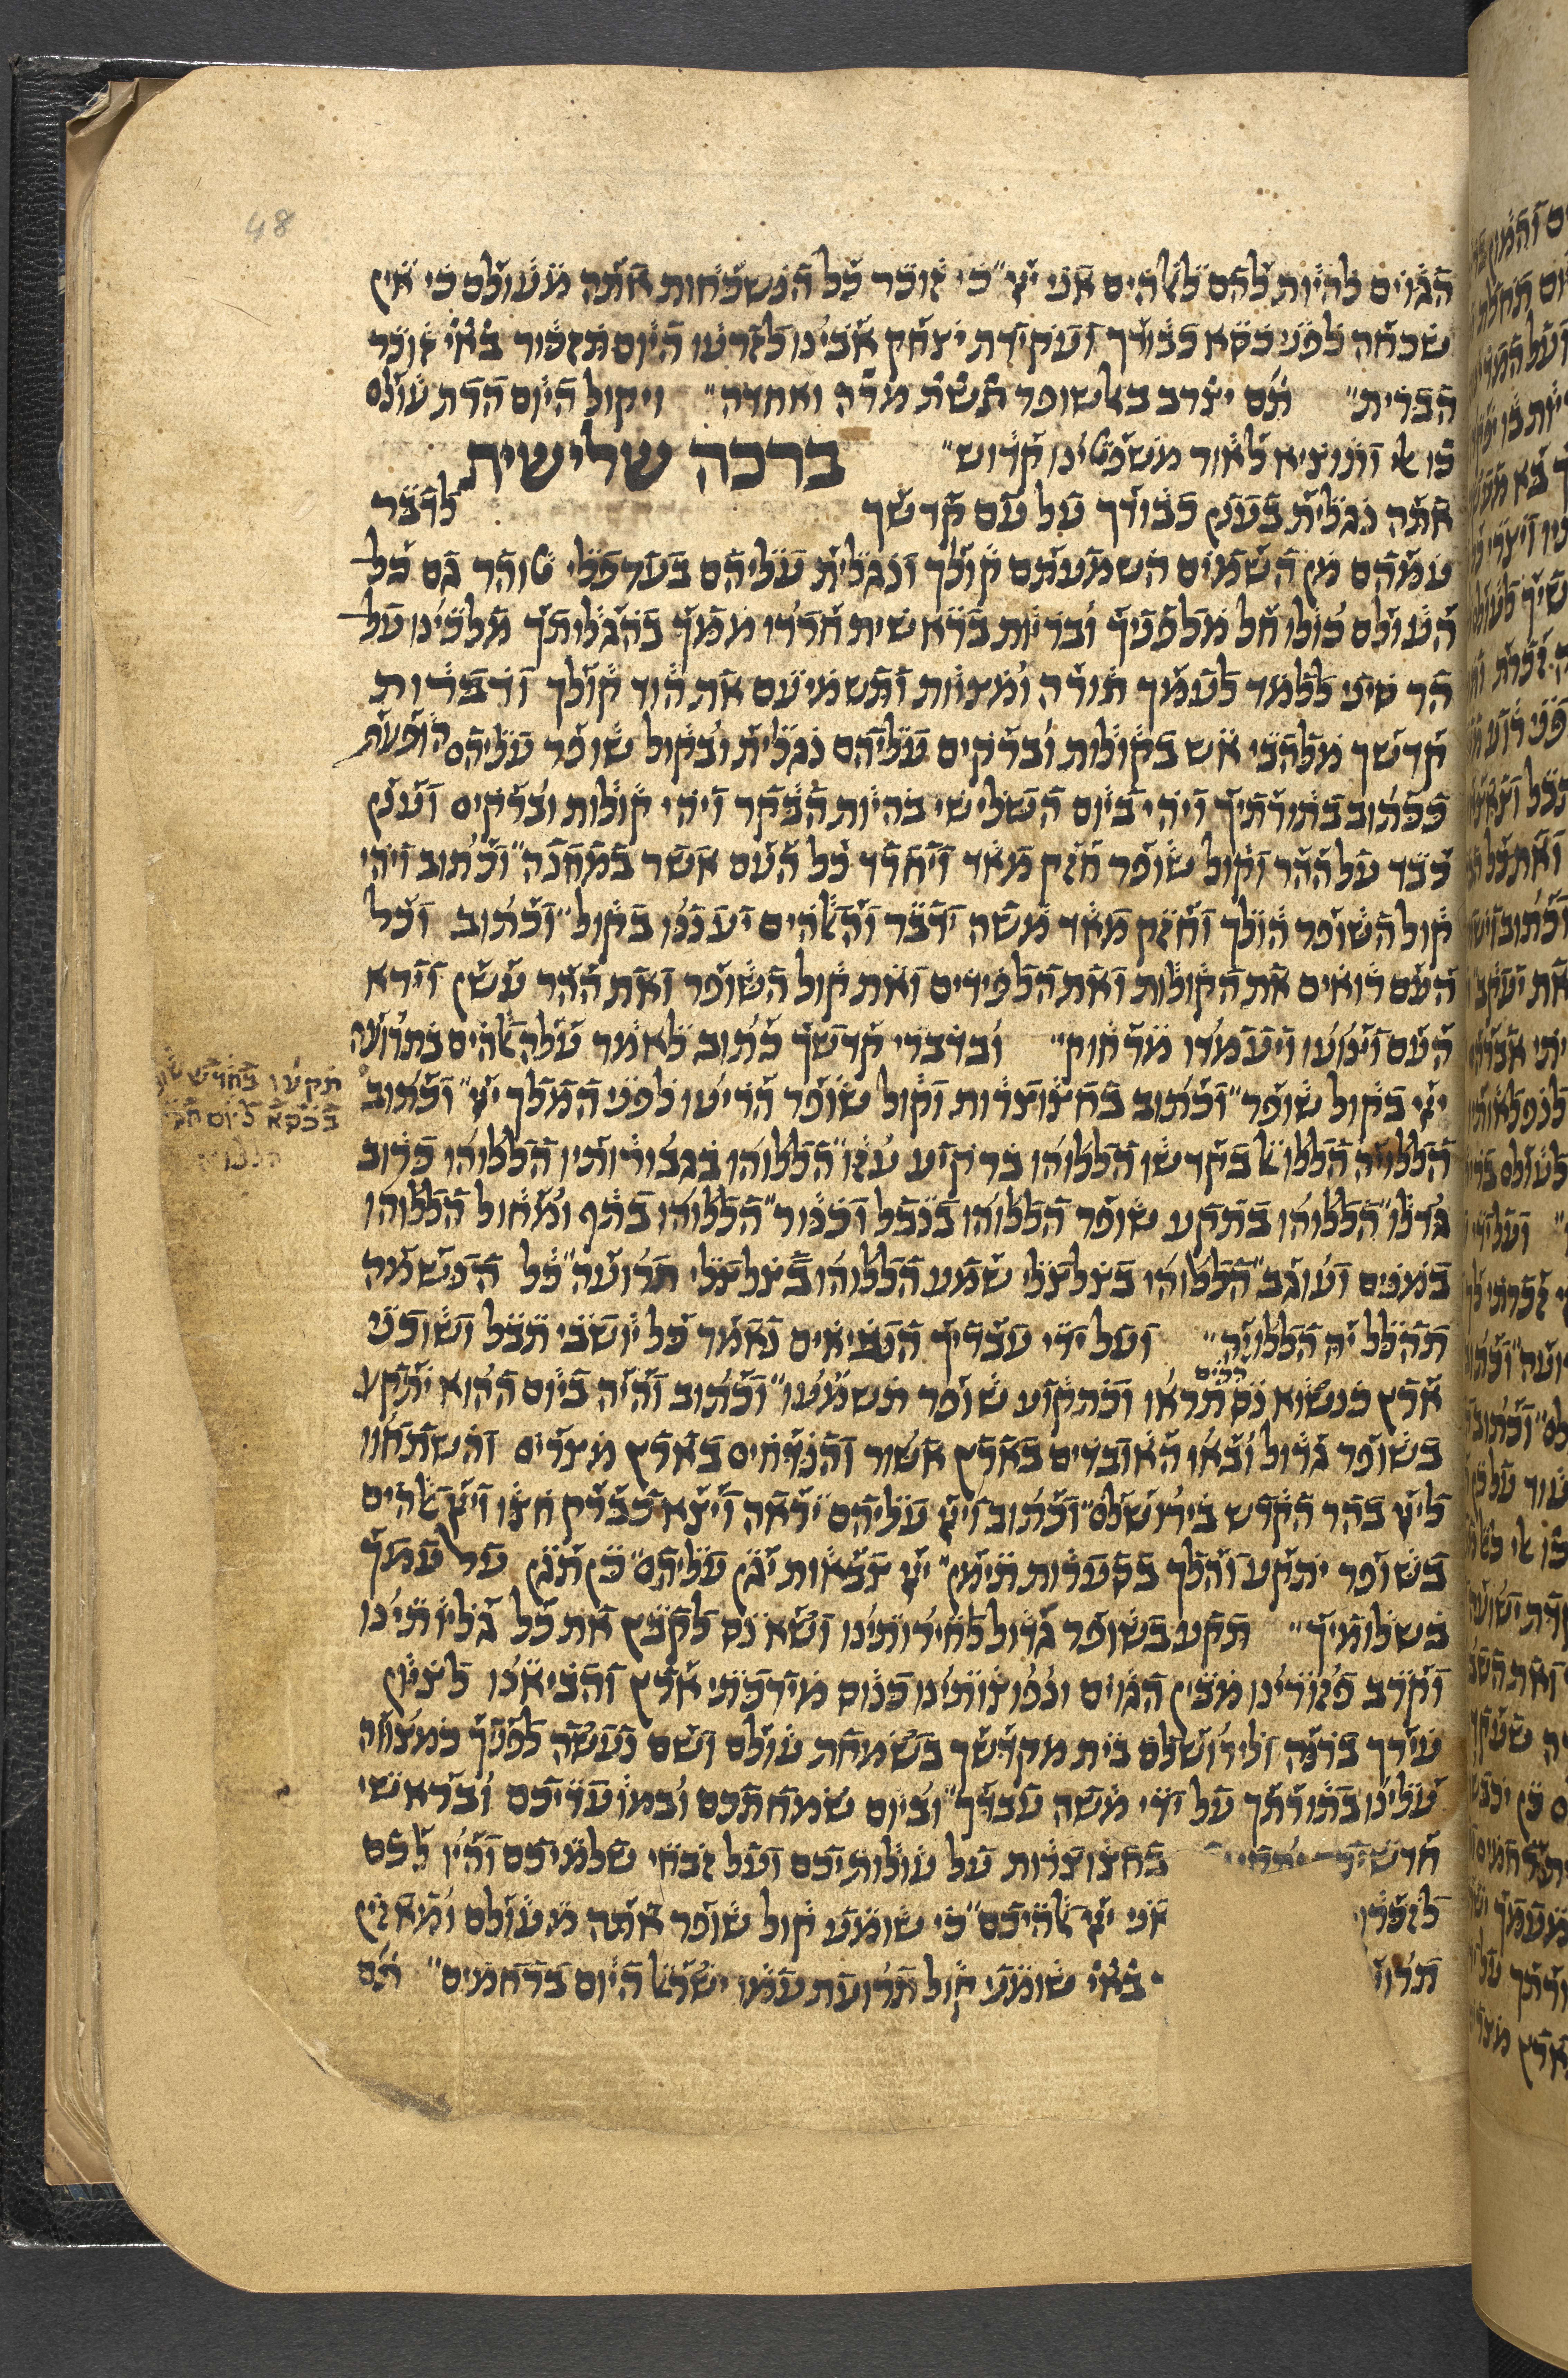 הגוים להיות להם לאלהים אני יי״ כי זוכר כל הנשכחות אתה מעולם כי אין
שכחה לפני כסא כבודך ועקידת יצחק אבינו לזרעו היום תזכור בא״י זוכר
הברית״ תם יצרב באלשופר תשת מרה ואחדה״ ויקול היום הרת עולם
כו אל ותוציא לאור משפטינו קדוש״ ברכה שלישית
אתה נגלית בענן כבודך על עם קדשך לדבר
עמהם מן השמים השמעתם קולך ונגלית עליהם בערפלי טוהר גם כל
העולם כולו חל מלפניך ובריות בראשית חרדו ממך בהגלותך מלכינו על
הר סיני ללמד לעמך תורה ומצוות ותשמיעם את הוד קולך ודברות
קדשך מלהבי אש בקולות וברקים עליהם נגלית ובקול שופר עליהם הופעת
ככתוב בתורתיך ויהי ביום השלישי בהיות הבקר ויהי קולות וברקים וענן
כבד על ההר וקול שופר חזק מאד ויחרד כל העם אשר במחנה״ וכתוב ויהי
קול השופר הולך וחזק מאד משה ידבר והאלהים יעננו בקול״ וכתוב וכל
העם רואים את הקולות ואת הלפידים ואת קול השופר ואת ההר עשן וירא
העם וינועו ויעמדו מרחוק״ ובדברי קדשך כתוב לאמר עלה אלהים בתרועה
יי בקול שופר״ וכתוב בחצוצרות וקול שופר הריעו לפני המלך יי״ וכתוב
תקעו בחדש שופר
בכסא ליום חגי
הללויה הללו אל בקדשו הללוהו ברקיע עוזו״ הללוהו בגבורותיו הללוהו כרוב
גודלו״ הללוהו בתקע שופר הללוהו בנבל וכנור״ הללוהו בתף ומחול הללוהו
במנים ועוגב״ הללוהו בצלצלי שמע הללוהו בצלצלי תרועה״ כל הנשמה
תהלל יה הללויה״ ועל ידי עבדיך הנביאים נאמר כל יושבי תבל ושוכני
ארץ כנשוא נס הרים תראו וכתקוע שופר תשמעו״ וכתוב והיה ביום ההוא יתקע
בשופר גדול ובאו האובדים בארץ אשור והנדחים בארץ מצרים והשתחוו
ליי בהר הקדש בירושלם״ וכתוב ויי עליהם יראה ויצא כברק חצו ויי אלהים
בשופר יתקע והלך בסערות תימן״ יי צבאות יגן עליהם״ כן תגן על עמך
בשלומיך״ תקע בשופר גדול לחירותינו ושא נס לקבץ את כל גליותינו
וקרב פזורינו מבין הגוים ונפוצותינו כנוס מירכתי ארץ והביאנו לציון
עירך ברנה ולירושלם בית מקדשך בשמחת עולם ושם נעשה לפניך כמצווה
עלינו בתורתך על ידי משה עבדך״ וביום שמחתכם ובמועדיכם ובראשי
חדשיכם בחצוצרות על עולותיכם ועל זבחי שלמיכם והיו לכם
לזכרון אני יי אלהיכם״ כי שומע קול שופר אתה מעולם ומאזין
בא״י שומע קול תרועת עמו ישראל היום ברחמים״ תם